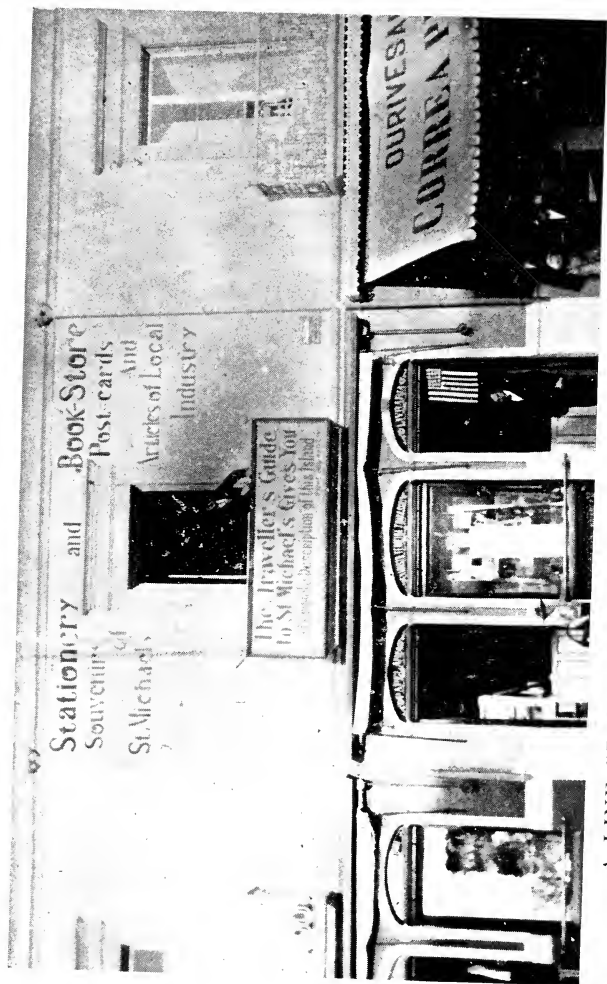 Stationery and Book-Store
Souvenirs of Post-cards
St. Michael's And
Articles of Local
Industry
The Traveller's Guide
to St Michael's Gives You
Description of this Island
OURIVESA
CORREA P